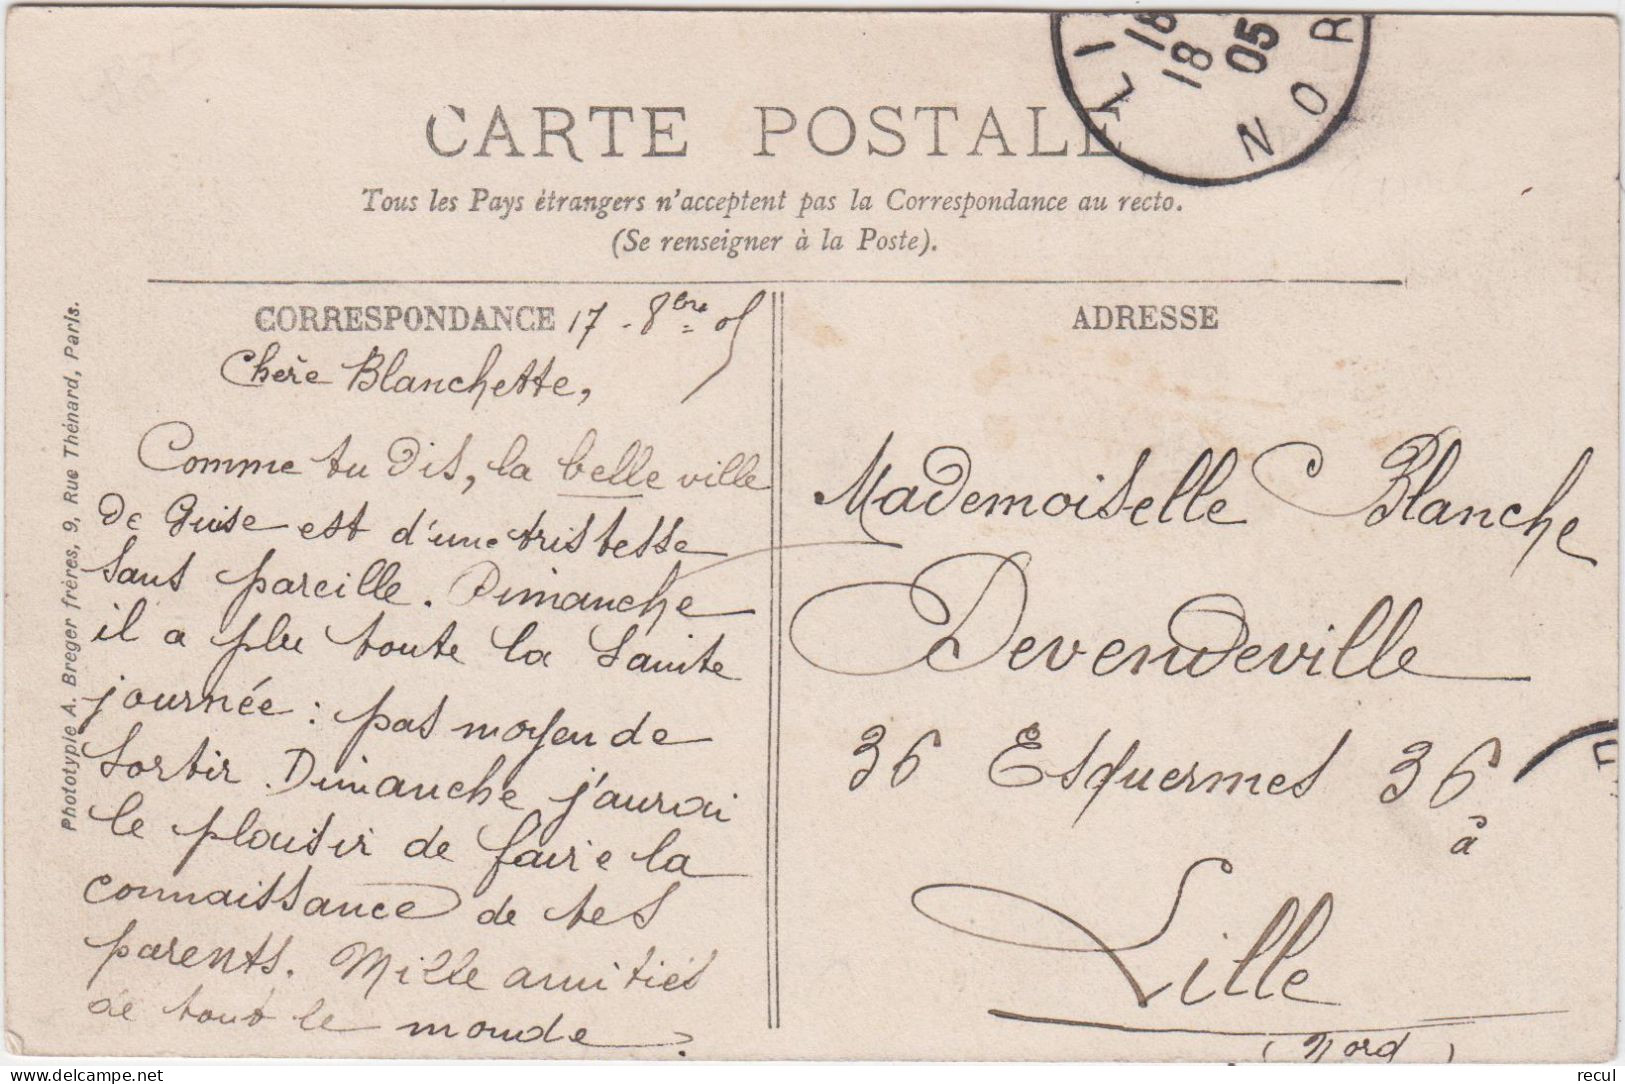 LI
18
18
05
NOR
CARTE POSTALE
Tous les Pays étrangers n'acceptent pas la Correspondance au recto.
(Se renseigner à la Poste).
CORRESPONDANCE 17 - 8bre 05
Chère Blanchette,
Comme tu dis, la belle ville
de Guise est d'une tristesse
sans pareille. Dimanche
il a plu toute la sainte
journée : pas moyen de
sortir. Dimanche j'aurai
le plaisir de faire la
connaissance de tes
parents. Mille amitiés
de tout le monde.
Phototypie A. Breger frères, 9, Rue Thénard, Paris.
ADRESSE
Mademoiselle Blanche
Devendeville
36 Esquermes 36
à
Lille
(Nord)
delcampe.net
recul